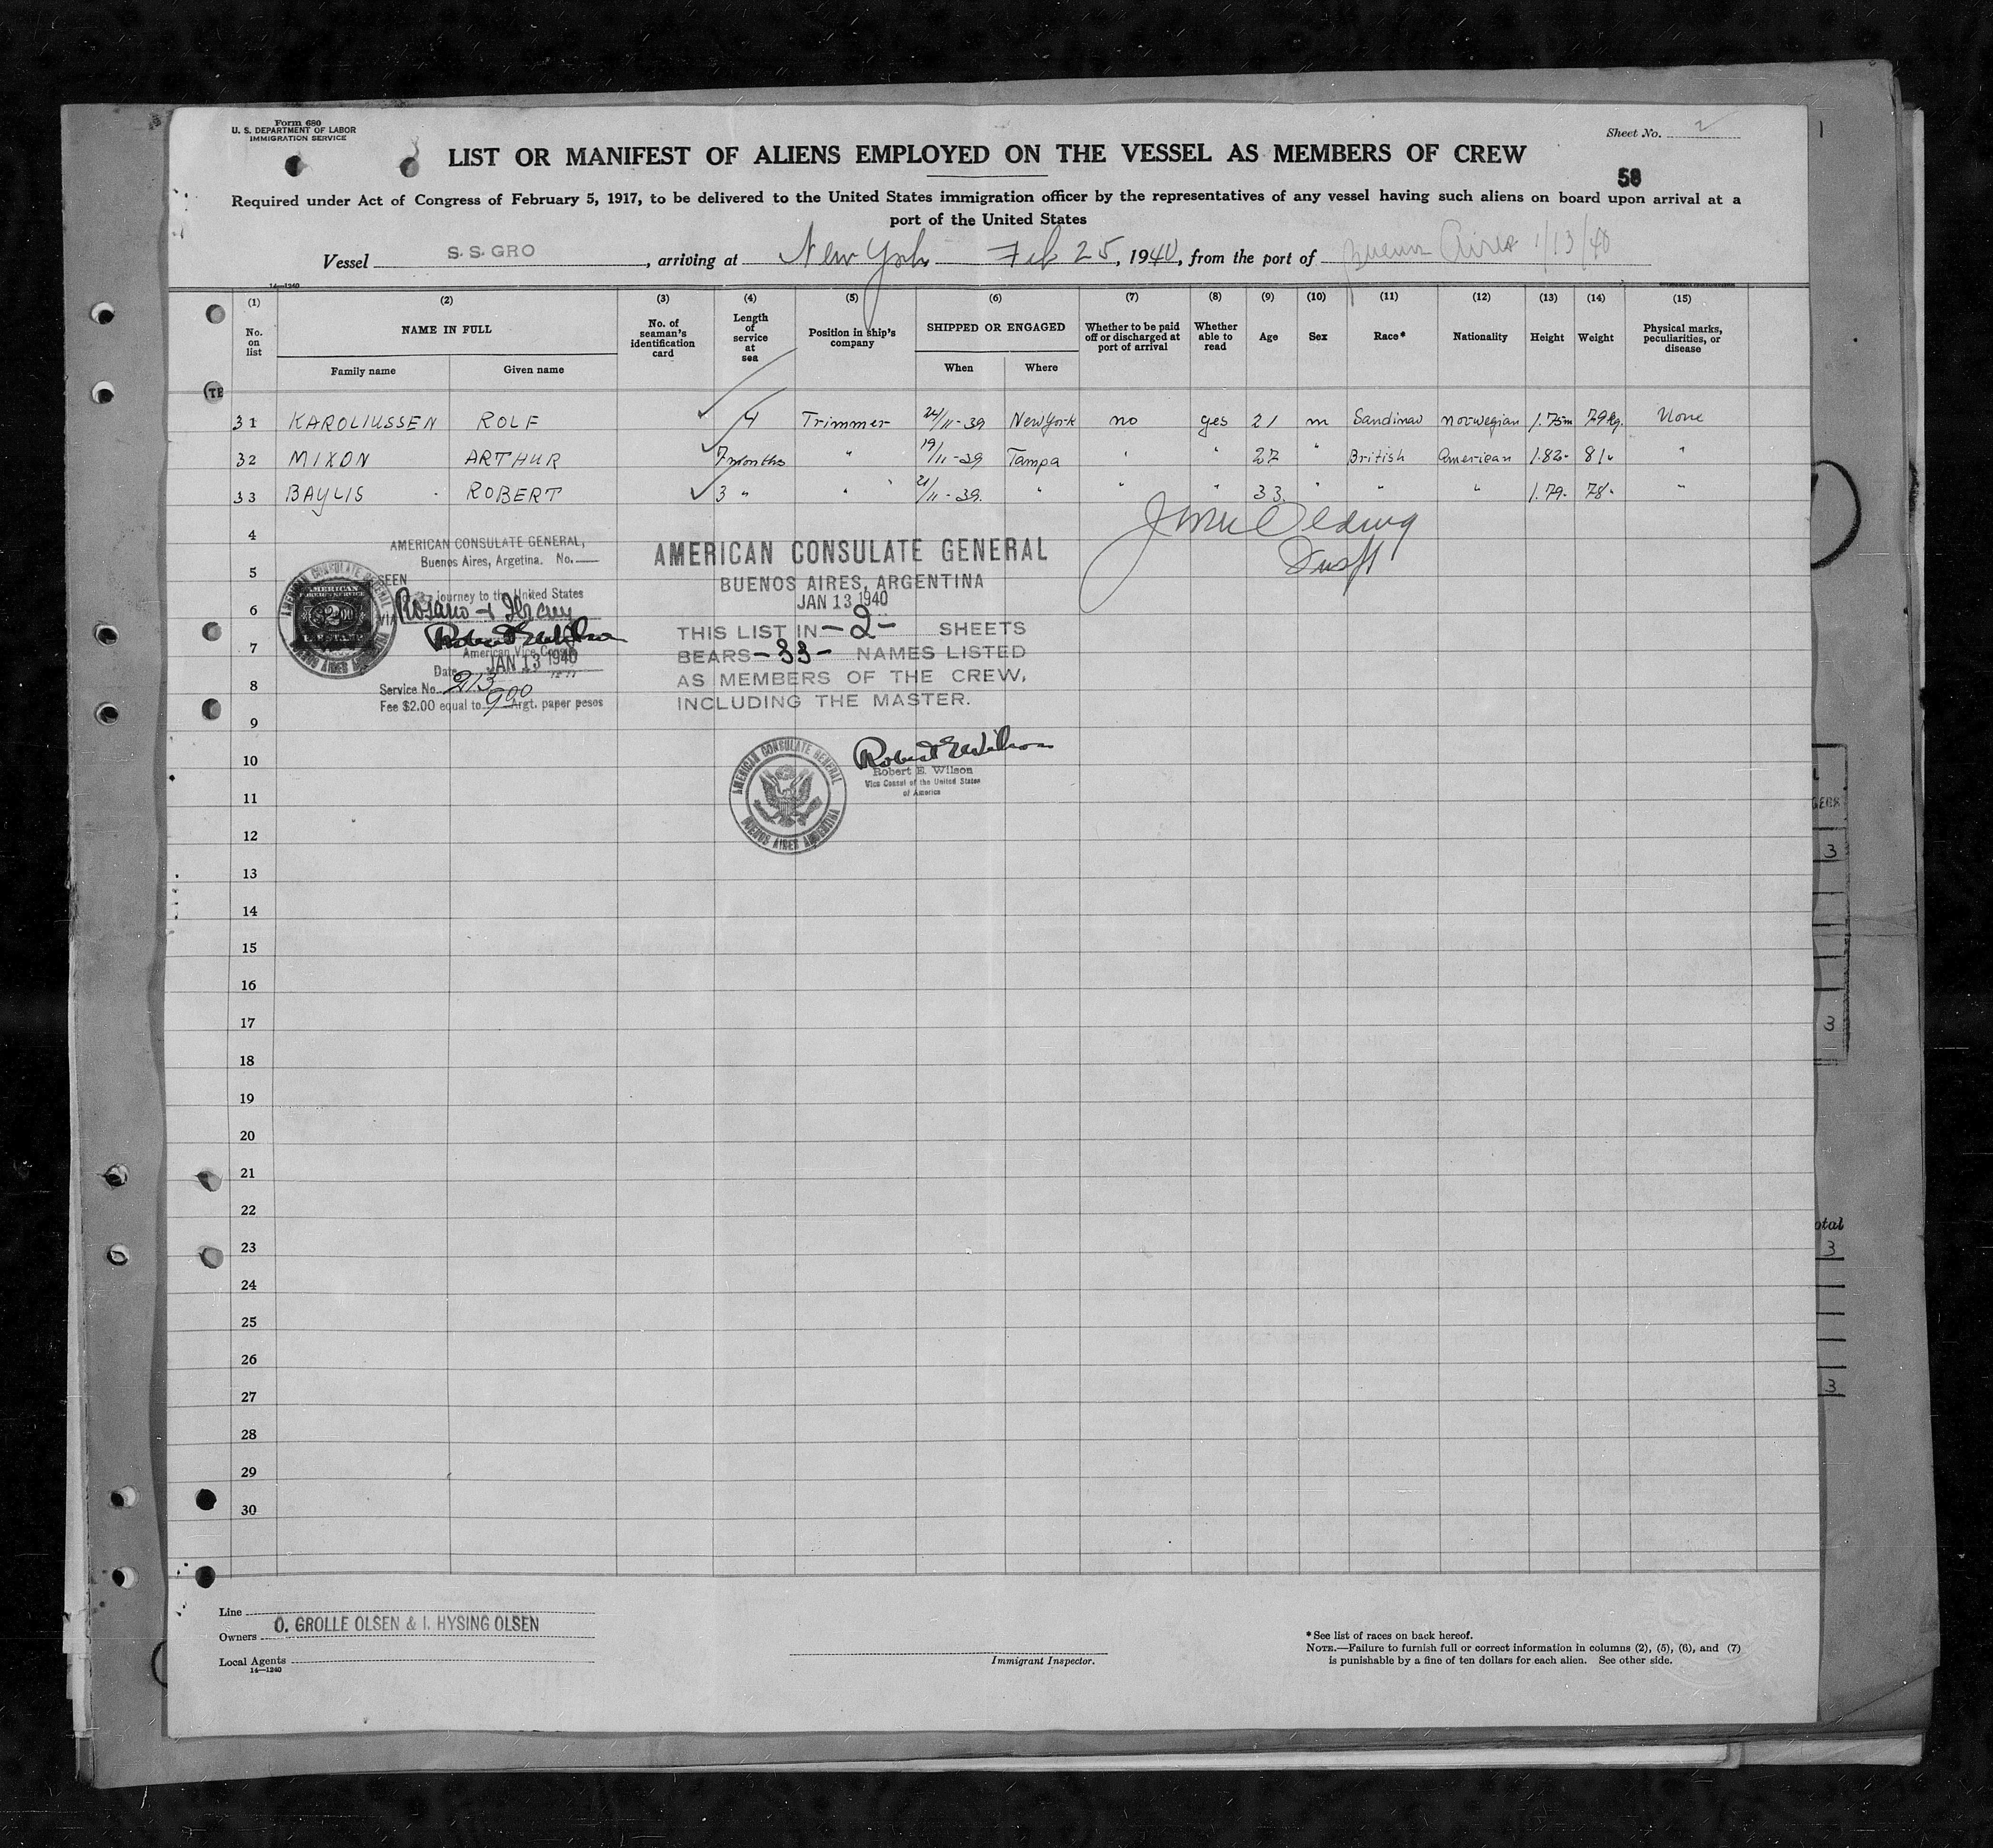 Form 680
U. S. DEPARTMENT OF LABOR
IMMIGRATION SERVICE
Sheet No. 2
LIST OR MANIFEST OF ALIENS EMPLOYED ON THE VESSEL AS MEMBERS OF CREW
58
Required under Act of Congress of February 5, 1917, to be delivered to the United States immigration officer by the representatives of any vessel having such aliens on board upon arrival at a
port of the United States
Vessel S. S. GRO, arriving at New York Feb 25, 1940, from the port of Buenos Aires 1/13/40
14—1240
(1) (2) (3) (4) (5) (6) (7) (8) (9) (10) (11) (12) (13) (14) (15)
No. on list
NAME IN FULL
Family name Given name
No. of seaman's identification card
Length of service at sea
Position in ship's company
SHIPPED OR ENGAGED
When Where
Whether to be paid off or discharged at port of arrival
Whether able to read
Age
Sex
Race*
Nationality
Height
Weight
Physical marks, peculiarities, or disease
31 KAROLIUSSEN ROLF 4 Trimmer 24/11-39 New York no yes 21 m Sandinav norwegian 1.75m 79kg. None
32 MIXON ARTHUR 7 months " 19/11-39 Tampa " " 27 " British American 1.82" 81" "
33 BAYLIS ROBERT 3 " " 21/11-39. " " " 33. " " " 1.79" 78" "
4
5
6
7
8
9
10
11
12
13
14
15
16
17
18
19
20
21
22
23
24
25
26
27
28
29
30
AMERICAN CONSULATE GENERAL,
Buenos Aires, Argetina. No.
SEEN
journey to the United States
VIA Rosario
Robert E Wilson
American Vice Consul
Date JAN 13 1940
Service No. 213
Fee $2.00 equal to 900 Argt. paper pesos
AMERICAN CONSULATE GENERAL
BUENOS AIRES ARGENTINA
AMERICAN
FOREIGN SERVICE
$2.00
AMERICAN CONSULATE GENERAL
BUENOS AIRES, ARGENTINA
JAN 13 1940
THIS LIST IN -2- SHEETS
BEARS -33- NAMES LISTED
AS MEMBERS OF THE CREW,
INCLUDING THE MASTER.
AMERICAN CONSULATE GENERAL
BUENOS AIRES ARGENTINA
Robert E Wilson
Robert E. Wilson
Vice Consul of the United States
of America
Line
Owners O. GROLLE OLSEN & I. HYSING OLSEN
Local Agents
14—1240
Immigrant Inspector.
* See list of races on back hereof.
NOTE.—Failure to furnish full or correct information in columns (2), (5), (6), and (7)
is punishable by a fine of ten dollars for each alien. See other side.
otal
3
3
3
3